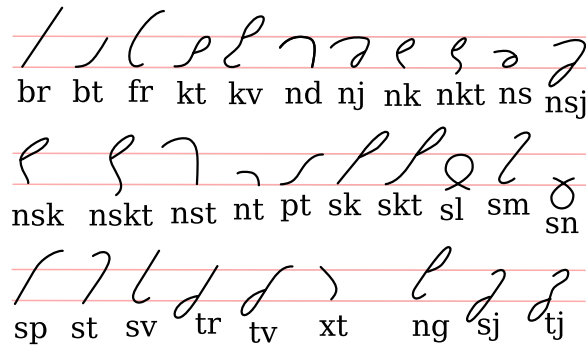 br bt fr kt kv nd nj nk nkt ns nsj
nsk nskt nst nt pt sk skt sl sm sn
sp st sv tr tv xt ng sj tj